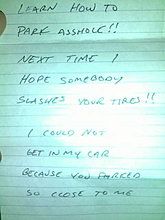 LEARN HOW TO
PARK ASSHOLE!!
NEXT TIME I
HOPE SOMEBODY
SLASHES YOUR TIRES!!
I COULD NOT
GET IN MY CAR
BECAUSE YOU PARKED
SO CLOSE TO ME